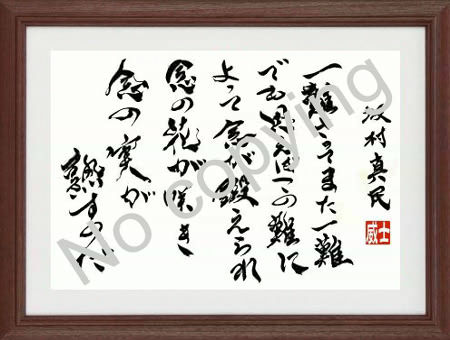 坂村真民
一難さってまた一難
でも思えばこの難に
よって念が鍛えられ
念の花が咲き
念の実が
熟すのだ
威士
No copying